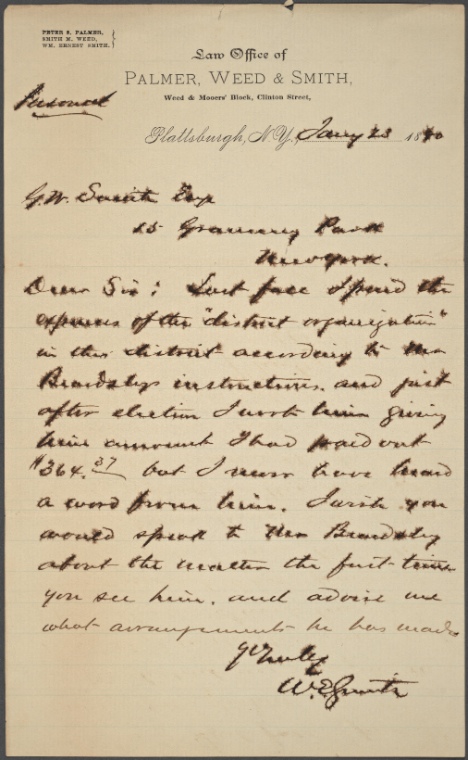 PETER S. PALMER,
SMITH M. WEED,
WM. ERNEST SMITH,
Law Office of
PALMER, WEED & SMITH,
Weed & Mooers' Block, Clinton Street,
Personal
Plattsburgh, N.Y., Jany 23 1880
G.W. Smith Esq
15 Gramercy Park
New York.
Dear Sir: Last fall I paid the
expenses of the "district organization"
in this district according to Mr
Beardsley's instructions. and just
after election I wrote him giving
him amount I had paid out
$364.37 but I never have heard
a word from him. I wish you
would speak to Mr Beardsley
about the matter the first time
you see him. and advise me
what arrangements he has made
Yr truly
W.E. Smith